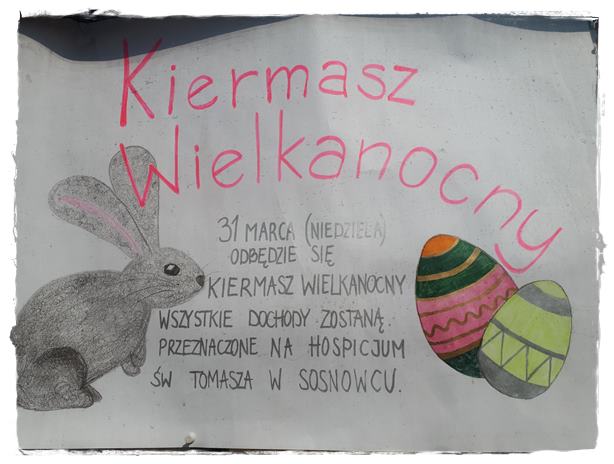 Kiermasz
Wielkanocny
31 MARCA (NIEDZIELA)
ODBĘDZIE SIĘ
KIERMASZ WIELKANOCNY
WSZYSTKIE DOCHODY ZOSTANĄ
PRZEZNACZONE NA HOSPICJUM
ŚW TOMASZA W SOSNOWCU.